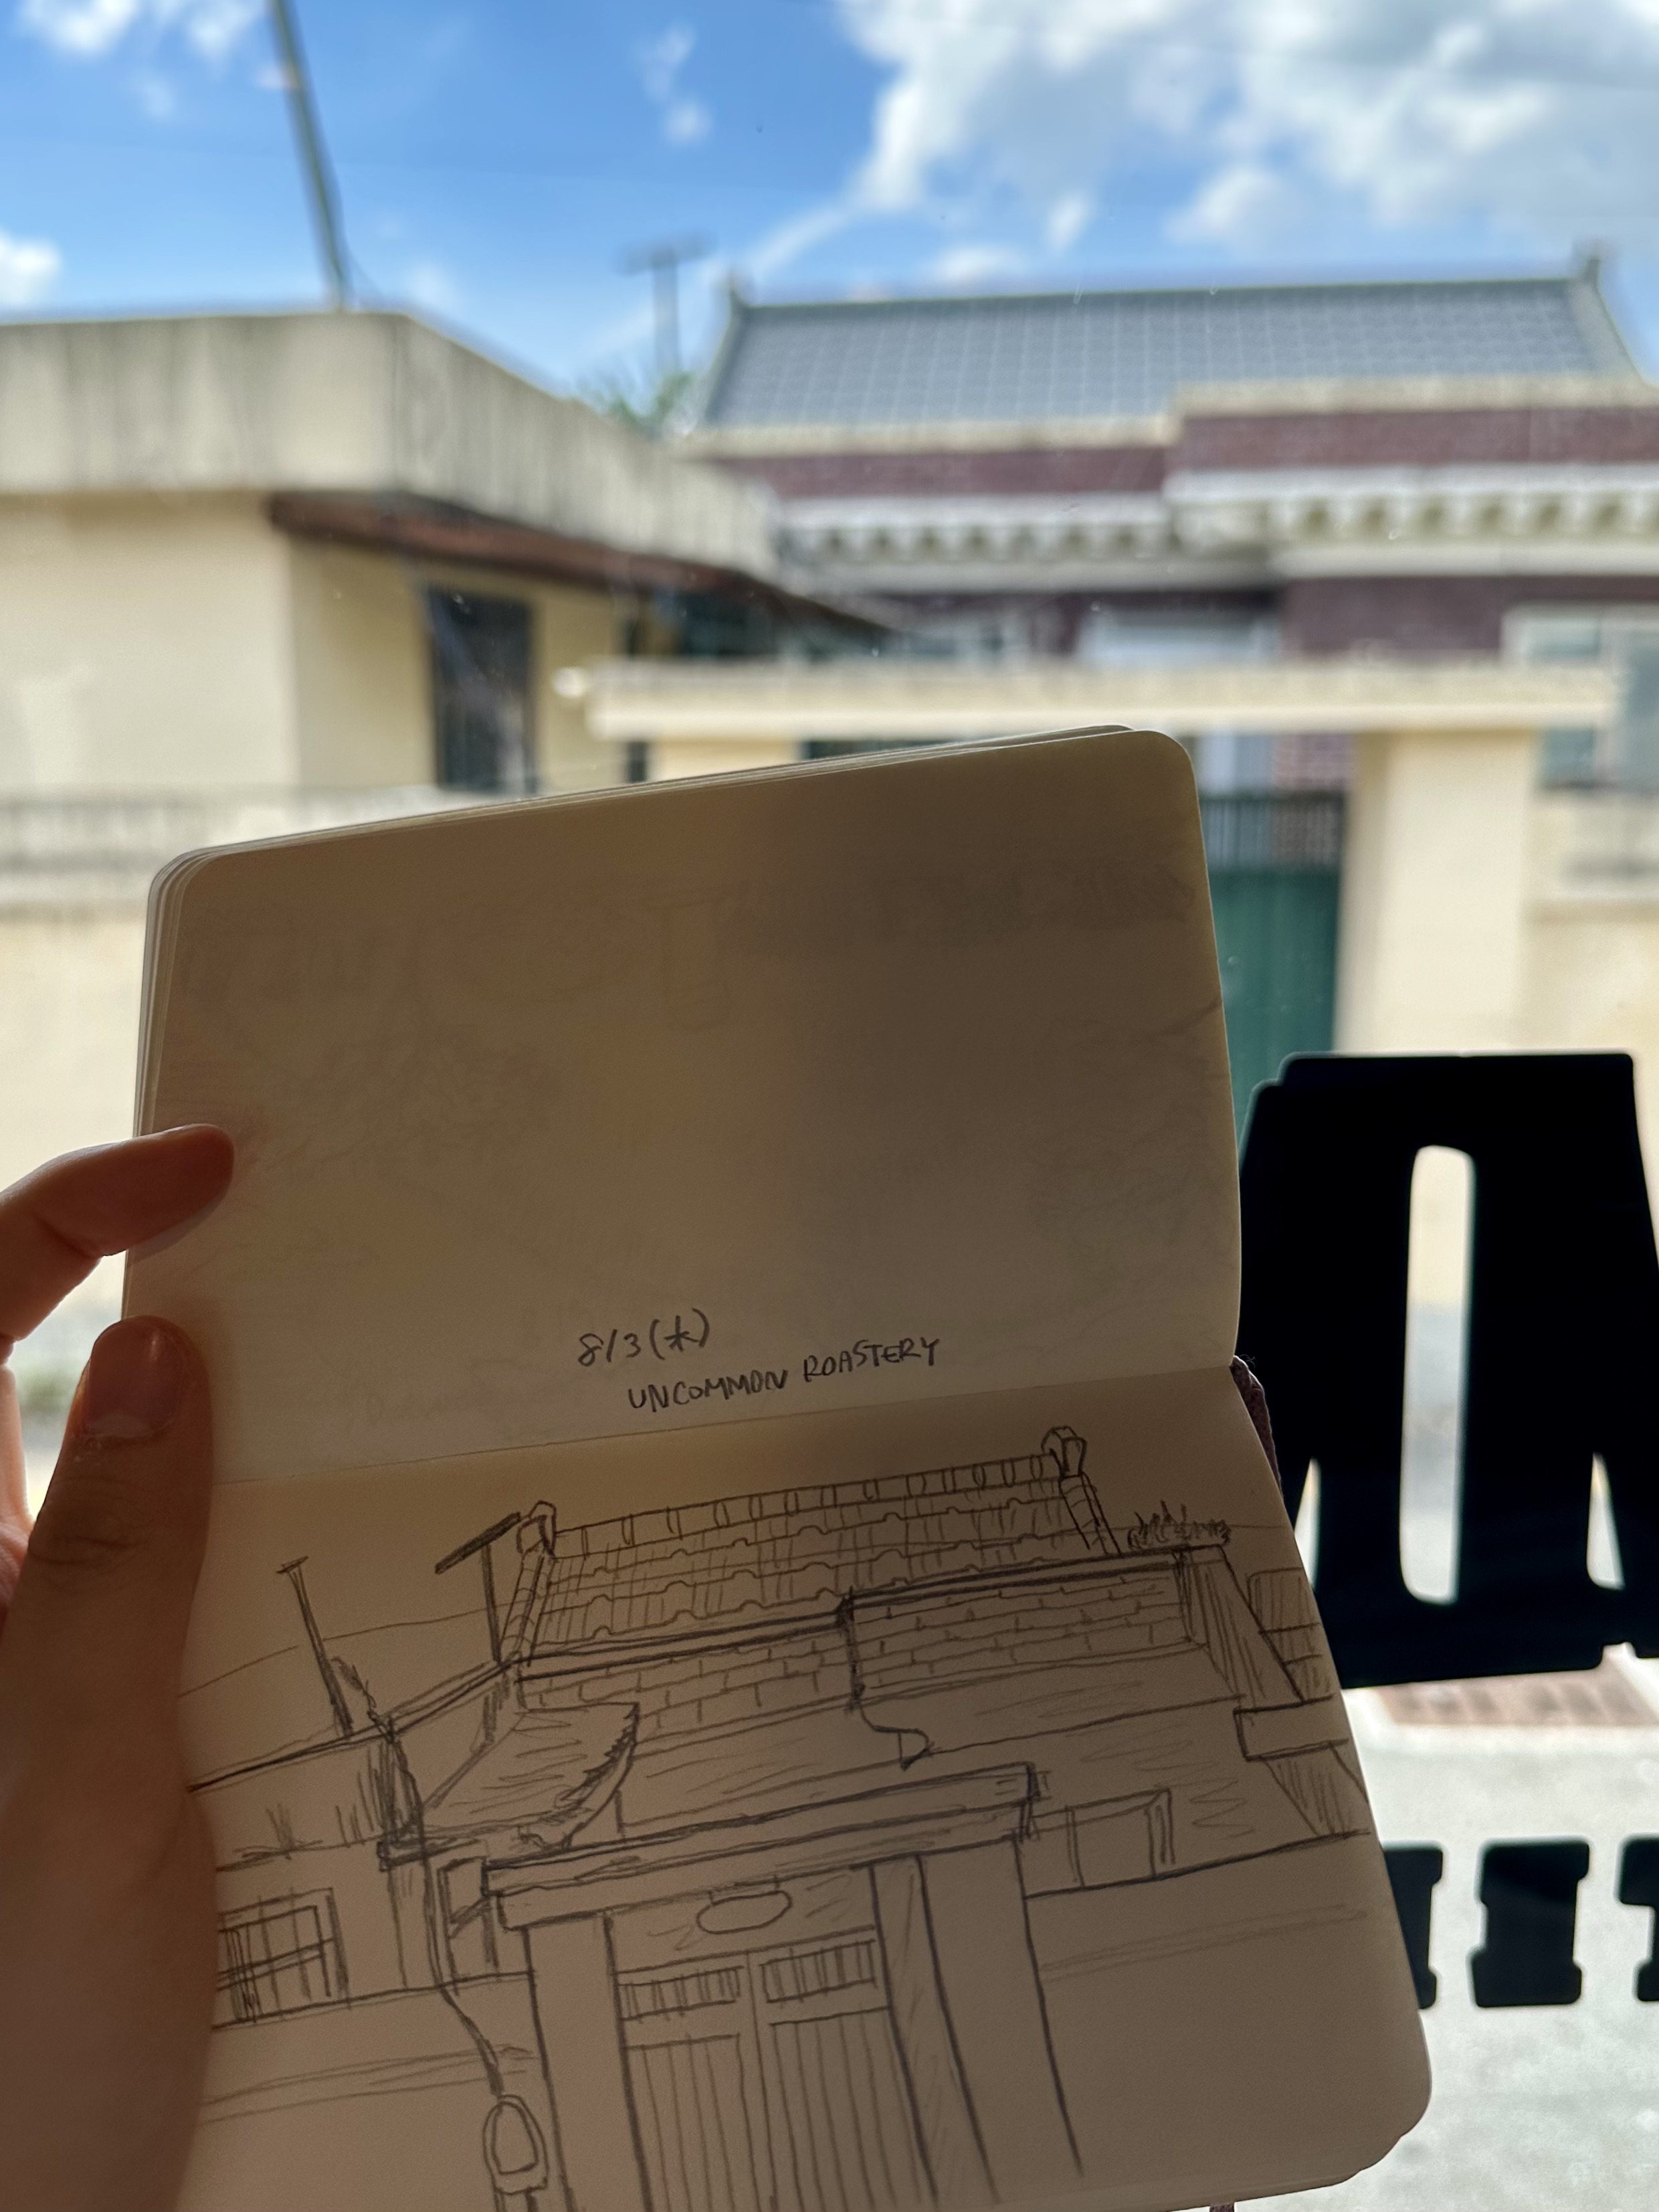 8/3(木)
UNCOMMON ROASTERY